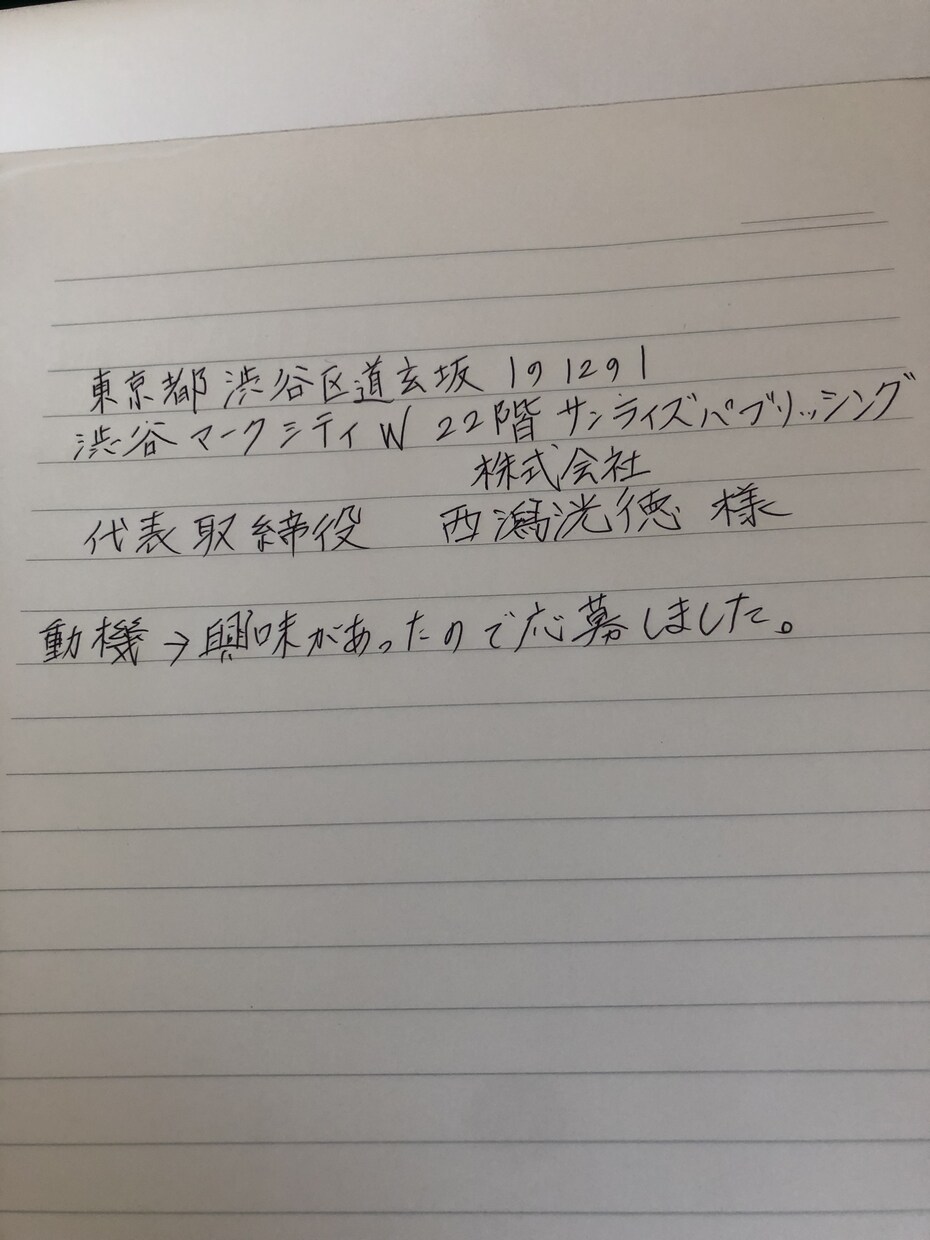 東京都渋谷区道玄坂1の12の1
渋谷マークシティW 22階サンライズパブリッシング
株式会社
代表取締役 西潟洸徳 様
動機→興味があったので応募しました。